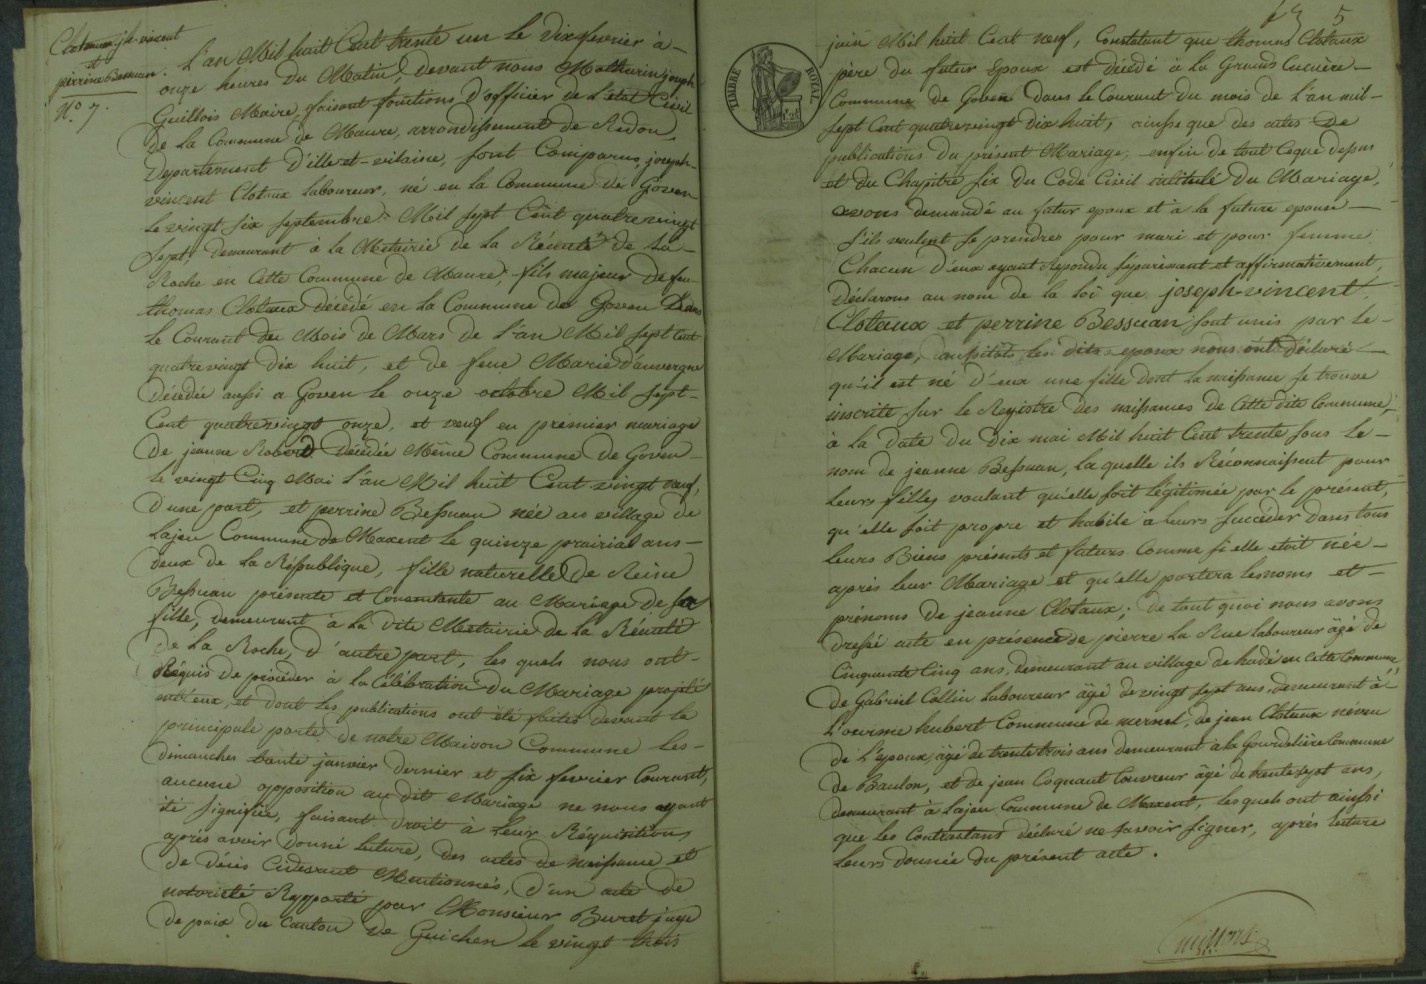 Clotaux jh. vincent
et
perrine Bessuan.
N.° 7.
L'an Mil huit Cent trente un le Dix fevrier à -
onze heures du Matin, devant nous Mathurin joseph
Guillois Maire, faisant fonctions d'officier de L'état Civil
De la Commune de Maure, arrondissement de Redon,
Departement D'ille et-vilaine, sont Comparus, joseph-
vincent Clotaux Laboureur, né en la Commune de Goven
Le vingt six septembre Mil sept Cent quatre vingt
sept, demeurant à la Métairie de la Récenté de La -
Roche en Cette Commune de Maure, fils majeur de feu
thomas Clotaux décédé en la Commune de Goven Dans
Le Courant du Mois de Mars de L'an Mil sept Cent
quatre vingt dix huit, et de feue Marie D'auvergne
décédée aussi a Goven le onze octobre Mil sept -
Cent quatre vingt onze, et veuf en premier mariage
De jeanne Robert Décédée Même Commune de Goven -
le vingt Cinq Mai L'an Mil huit Cent vingt neuf,
D'une part, et perrine Bessuan née au village de
Lajeu Commune de Maxent le quinze prairial ans -
Deux de la République, fille naturelle De Reine
Bessuan présente et Consentante au Mariage de sa
fille, demeurant à la dite Métairie de la Récenté
De la Roche, D'autre part, les quels nous ont -
Réquis de procéder à la Célébration du Mariage projeté
entr'eux, et dont les publications ont été faites devant la
principale porte de notre Maison Commune les -
dimanches trente janvier dernier et six fevrier Courant,
aucune opposition au dit Mariage ne nous ayant
été signifiée, faisant Droit à leur Réquisitions
après avoir donné lecture, des actes de naissance et
de décès Cidevant Mentionnés, D'un acte de
notoriété Rapporté par Monsieur Buret juge
De paix du Canton De Guichen le vingt trois
5
TIMBRE ROYAL
juin Mil huit Cent neuf, Constatant que thomas Clotaux
père du futur Epoux est décédé à la
Commune de Goven Dans le Courant du mois de L'an mil -
sept Cent quatre vingt Dix huit, ainsi que des actes De
publications du présent Mariage, enfin de tout Ceque dessus
et du Chapitre six du Code Civil intitulé du Mariage,
avons demandé au futur epoux et à la future epouse -
S'ils veulent se prendre pour mari et pour femme
Chacun D'eux ayant Repondu séparément et affirmativement,
Déclarons au nom de la loi que joseph-vincent
Clotaux et perrine Bessuan sont unis par le -
Mariage, aussitôt les dits epoux nous ont Déclaré -
qu'il est né D'eux une fille dont la naissance se trouve
inscrite sur le Registre des naissances de Cette dite Commune,
à la date du Dix mai Mil huit Cent trente sous le -
nom de jeanne Bessuan, la quelle ils Réconnaissent pour
Leurs filles voulant qu'elle soit légitimée par le présent,
qu'elle soit propre et habile à Leurs succéder Dans tous
Leurs Biens présents et futurs Comme si elle etoit née -
après leur Mariage et qu'elle portera les noms et -
prénoms de jeanne Clotaux; de tout quoi nous avons
Dressé acte en présence de pierre La Rue Laboureur âgé de
Cinquante Cinq ans, demeurant au village de hadé en Cette Commune,
de Gabriel Collin Laboureur âgé de vingt sept ans, demeurant à -
hubert Commune de mernel, de jean Clotaux neveu
de L'epoux, âgé de trente trois ans demeurant à la Gourdelière Commune
de Baulon, et de jean Coquant Couvreur âgé de trente sept ans,
demeurant à Lajeu Commune de Maxent, les quels ont ainsi
que les Contractans déclaré ne savoir signer, après lecture
Leurs donnée du présent acte.
Guillois